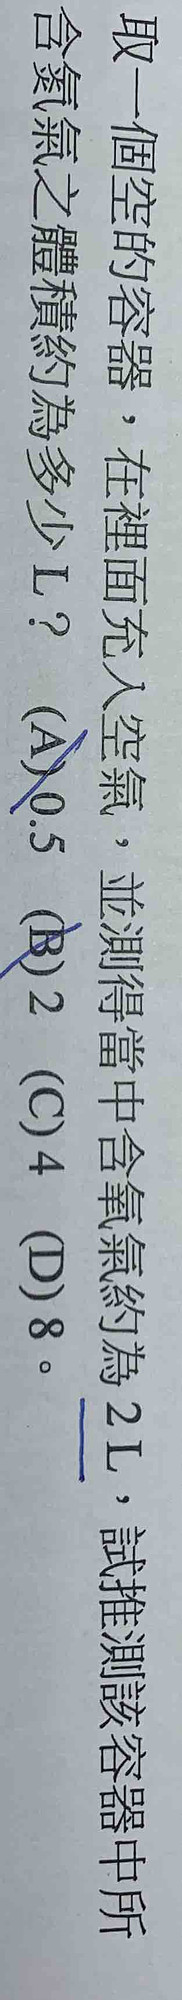 取一個空的容器，在裡面充入空氣，並測得當中含氧氣約為 2 L，試推測該容器中所
含氮氣之體積約為多少 L？ (A) 0.5 (B) 2 (C) 4 (D) 8。